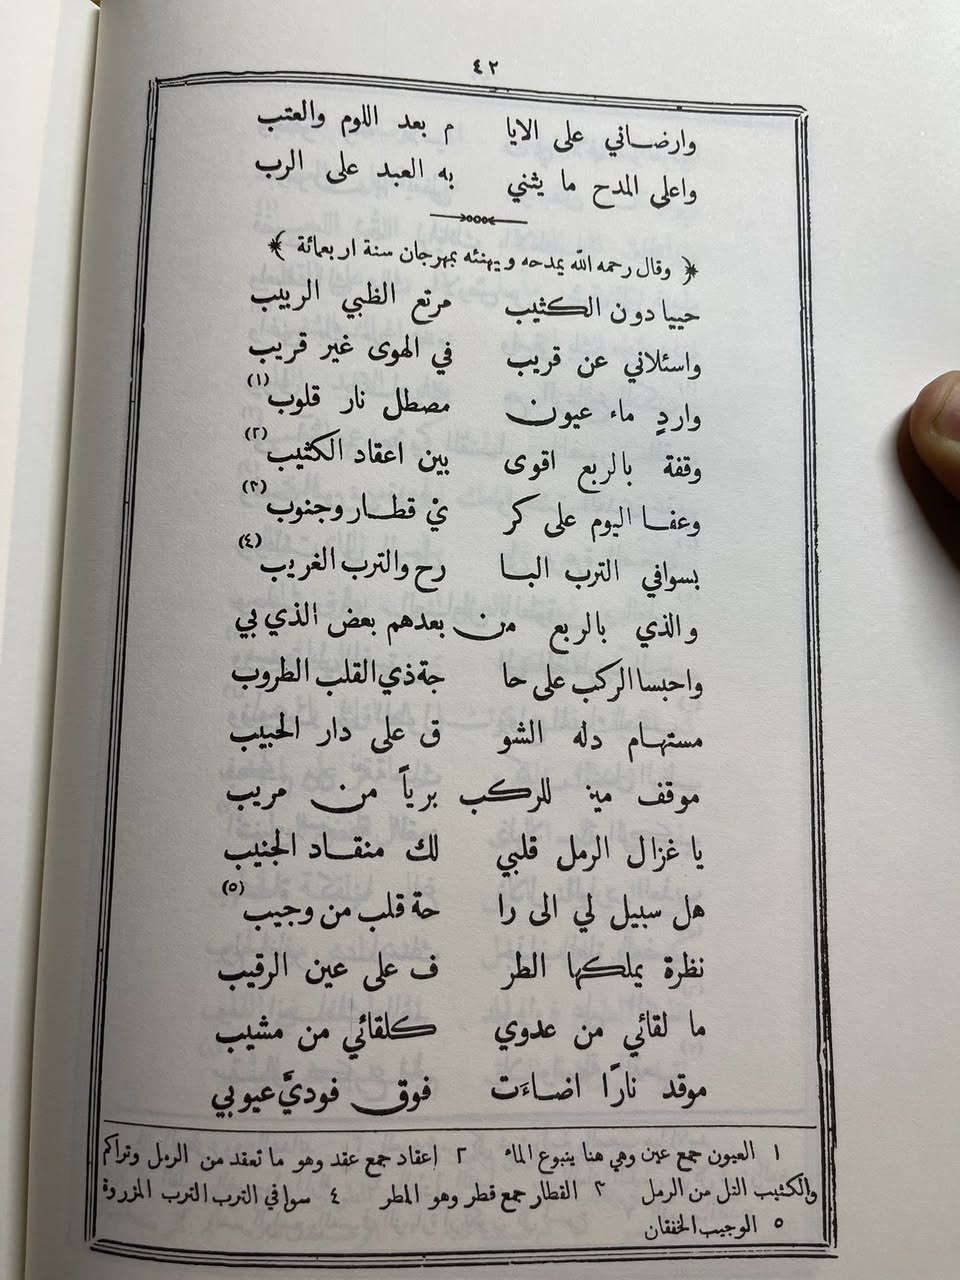 ٤٢
وارضاني على الايا م بعد اللوم والعتب
واعلى المدح ما يثني به العبد على الرب
﴿ وقال رحمه الله يمدحه ويهنئه بمهرجان سنة اربعمائة ﴾
حييا دون الكثيب مرتع الظبي الربيب
واسئلاني عن قريب في الهوى غير قريب
واردٍ ماء عيون مصطل نار قلوب (١)
وقفة بالربع اقوى بين اعقاد الكثيب (٢)
وعفا اليوم على كر ي قطار وجنوب (٣)
بسوافي الترب البا رح والترب الغريب (٤)
والذي بالربع من بعدهم بعض الذي بي
واحبسا الركب على حا جة ذي القلب الطروب
مستهام دله الشو ق على دار الحبيب
موقف ميز للركب برياً من مريب
يا غزال الرمل قلبي لك منقاد الجنيب
هل سبيل لي الى را حة قلب من وجيب (٥)
نظرة يملكها الطر ف على عين الرقيب
ما لقائي من عدوي كلقائي من مشيب
موقد نارًا اضاءَت فوق فوديَّ عيوبي
١ العيون جمع عين وهي هنا ينبوع الماء ٢ اعقاد جمع عقد وهو ما تعقد من الرمل وتراكم
والكثيب التل من الرمل ٣ القطار جمع قطر وهو المطر ٤ سوافي الترب الترب المزروة
٥ الوجيب الخفقان